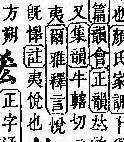 也顏氏家訓
篇韻會正韻𠀤
又集韻牛轄切
夷爾雅釋言悅
旣懌註夷悅也
方朔
正字通